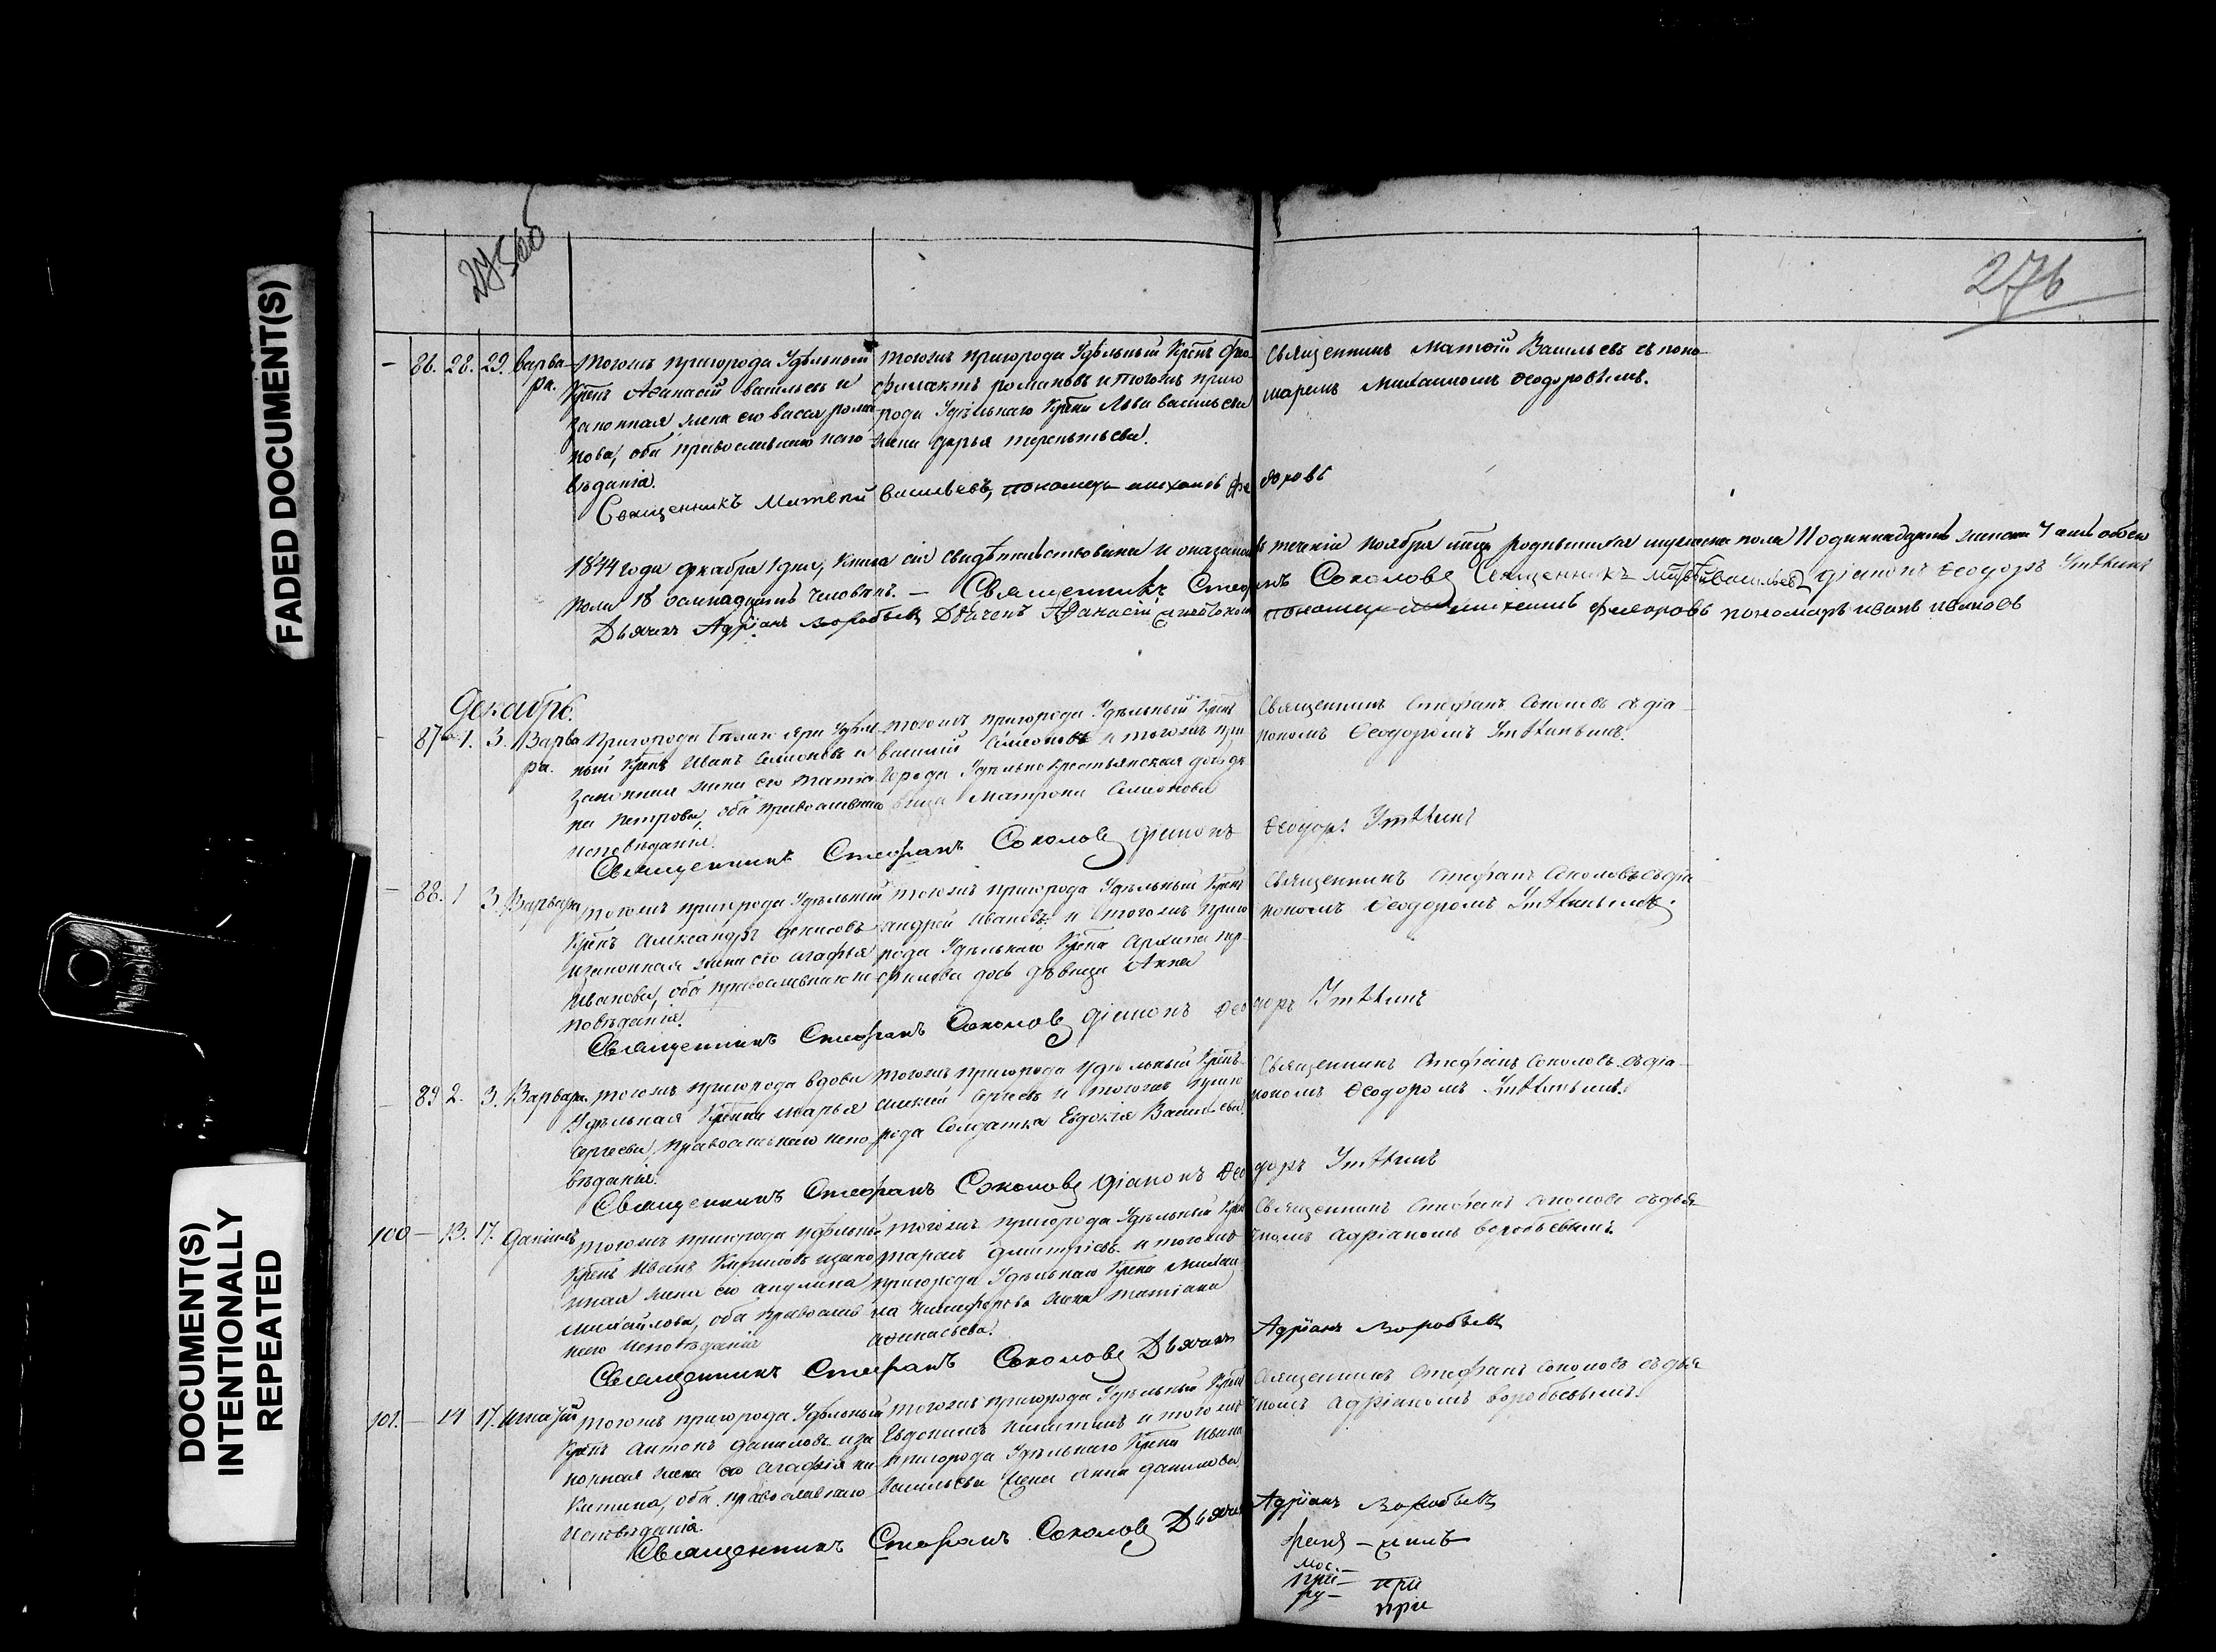 FADED DOCUMENT(S)
DOCUMENT(S)
INTENTIONALLY
REPEATED
275об
276
86. 28. 29. Варва-
ра.
тогожъ пригорода Удѣльный
Крнъ Аѳанасій Васильевъ и
законная жена его Васса Рома-
нова, оба православнаго испо-
вѣданія.
тогожъ пригорода Удѣльный Крнъ Фео-
филактъ Романовъ и тогожъ приго
рода Удѣльнаго Крна Льва Васильева
жена Дарья Терентьева.
Священникъ Матѳій Васильевъ съ поно-
маремъ Михаиломъ Ѳеодоровымъ.
Священникъ Матвей Васильевъ, пономарь михаилъ Федоровъ
1844 года декабря 1 дня, книга сія свидѣтельствована и оказалось въ теченіи Ноября мца родившихся мужеска пола 11 одиннадцать женска 7 семь обоего
пола 18 осмнадцать человѣкъ. – Священникъ Стефанъ Соколовъ Священникъ Матвей Васильевъ Діаконъ Ѳеодоръ Утѣкинъ
Дьячекъ Адріанъ Воробьевъ Дьячекъ Аѳанасій пономарь михаилъ Федоровъ пономарь иванъ ивановъ
Декабрь.
87 1. 3. Варва
ра.
Пригорода Бѣлаго Яра Удѣль
ный Крнъ Иванъ Симоновъ и
законная жена его Татіа
на Петрова, оба православнаго
исповѣданія.
тогожъ пригорода Удѣльный Крнъ
Василій Симоновъ и тогожъ при
города Удѣльно Крестьянская дочь дѣ
вица Матрона Симонова
Священникъ Стефанъ Соколовъ съ діа-
кономъ Ѳеодоромъ Утѣкинымъ.
Священникъ Стефанъ Соколовъ Діаконъ Ѳеодоръ Утѣкинъ
88. 1 3. Варвара
тогожъ пригорода Удѣльный
Крнъ Александръ Денисовъ
и законная жена его Агафья
Иванова, оба православнаго ис-
повѣданія.
тогожъ пригорода Удѣльный Крнъ
Андрей Ивановъ и тогожъ приго
рода Удѣльнаго Крна Архипа пер-
филова дочь дѣвица Анна
Священникъ Стефанъ Соколовъ съ діа
кономъ Ѳеодоромъ Утѣкинымъ.
Священникъ Стефанъ Соколовъ Діаконъ Ѳеодоръ Утѣкинъ
89 2. 3. Варвара.
тогожъ пригорода вдова
Удѣльная Крнка Марья
Сергеева, православнаго испо
вѣданія.
тогожъ пригорода Удѣльный Крнъ
Алексей Сергеевъ и тогожъ приго
рода Солдатка Евдокія Васильева.
Священникъ Стефанъ Соколовъ съ діа-
кономъ Ѳеодоромъ Утѣкинымъ.
Священникъ Стефанъ Соколовъ Діаконъ Ѳеодоръ Утѣкинъ
100 – 13. 17. Даніилъ
тогожъ пригорода Удѣльный
Крнъ Иванъ Кириловъ и зако
нная жена его Акулина
Михайлова, оба православ
наго исповѣданія
тогожъ пригорода Удѣльный Крнъ
Тарасъ Дмитріевъ и тогожъ
пригорода Удѣльнаго Крна Михаи
ла Никифорова жена Татіана
Аѳанасьева.
Священникъ Стефанъ Соколовъ съ дья-
чкомъ Адріаномъ Воробьевымъ.
Священникъ Стефанъ Соколовъ Дьячекъ Адріанъ Воробьевъ
101. – 14 17. Игнатій
тогожъ пригорода Удѣльный
Крнъ Антонъ Даниловъ и за
конная жена его Агафія Ни
китина, оба православнаго
исповѣданія.
тогожъ пригорода Удѣльный Крнъ
Евдокимъ Никитинъ и тогожъ
пригорода Удѣльнаго Крна Ивана
Васильева жена Анна Данилова
Священникъ Стефанъ Соколовъ съ дья
чкомъ Адріаномъ Воробьевымъ.
Священникъ Стефанъ Соколовъ Дьячекъ Адріанъ Воробьевъ
при
при